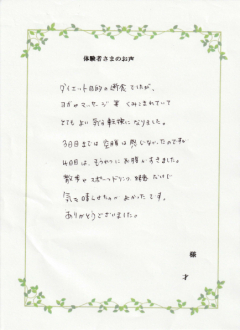 体験者さまのお声
ダイエット目的の断食でしたが、
ヨガやマッサージ等 くみこまれていて
とてもよい気分転換になりました。
3日目までは空腹は感じないったのですが
4日目は、さすがにお腹がすきました。
散歩やスポーツドリンク
気を晴らせたのがよかったです。
ありがとうございました。
様
才